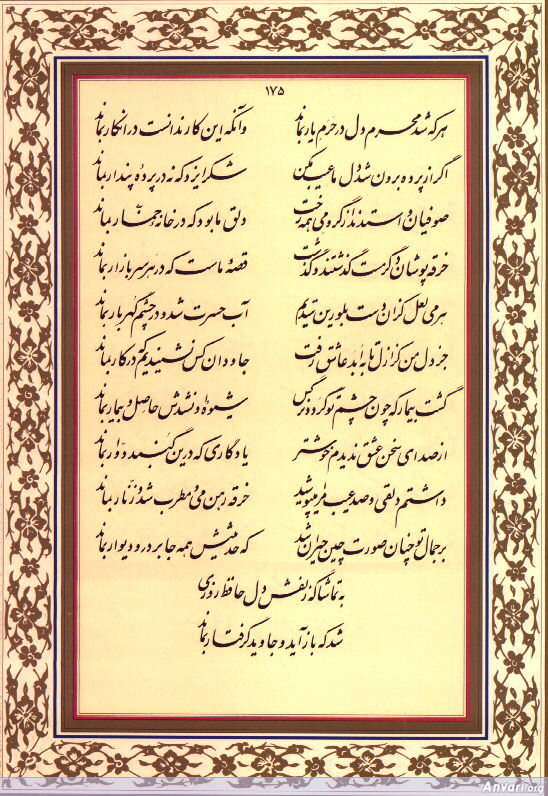 ۱۷۵
هر که شد محرم دل در حرم یار بماند وآنکه این کار ندانست در انکار بماند
اگر از پرده برون شد دل ما عیب مکن شکر ایزد که نه در پردهٔ پندار بماند
صوفیان واستدند از گرو می همه رخت دلق ما بود که در خانهٔ خمّار بماند
خرقه پوشان دگر مست گذشتند و گذشت قصهٔ ماست که در هر سر بازار بماند
هر می لعل کزان دست بلورین ستدیم آب حسرت شد و در چشم گهربار بماند
جز دل من کز ازل تا به ابد عاشق رفت جاودان کس نشنیدیم که در کار بماند
گشت بیمار که چون چشم تو گردد نرگس شیوهٔ او نشدش حاصل و بیمار بماند
از صدای سخن عشق ندیدم خوشتر یادگاری که درین گنبد دوّار بماند
داشتم دلقی و صد عیب مرا میپوشید خرقه رهن می و مطرب شد و زنّار بماند
بر جمال تو چنان صورت چین حیران شد که حدیثش همه جا بر در و دیوار بماند
به تماشاگه زلفش دل حافظ روزی
شد که باز آید و جاوید گرفتار بماند
Anvari.org